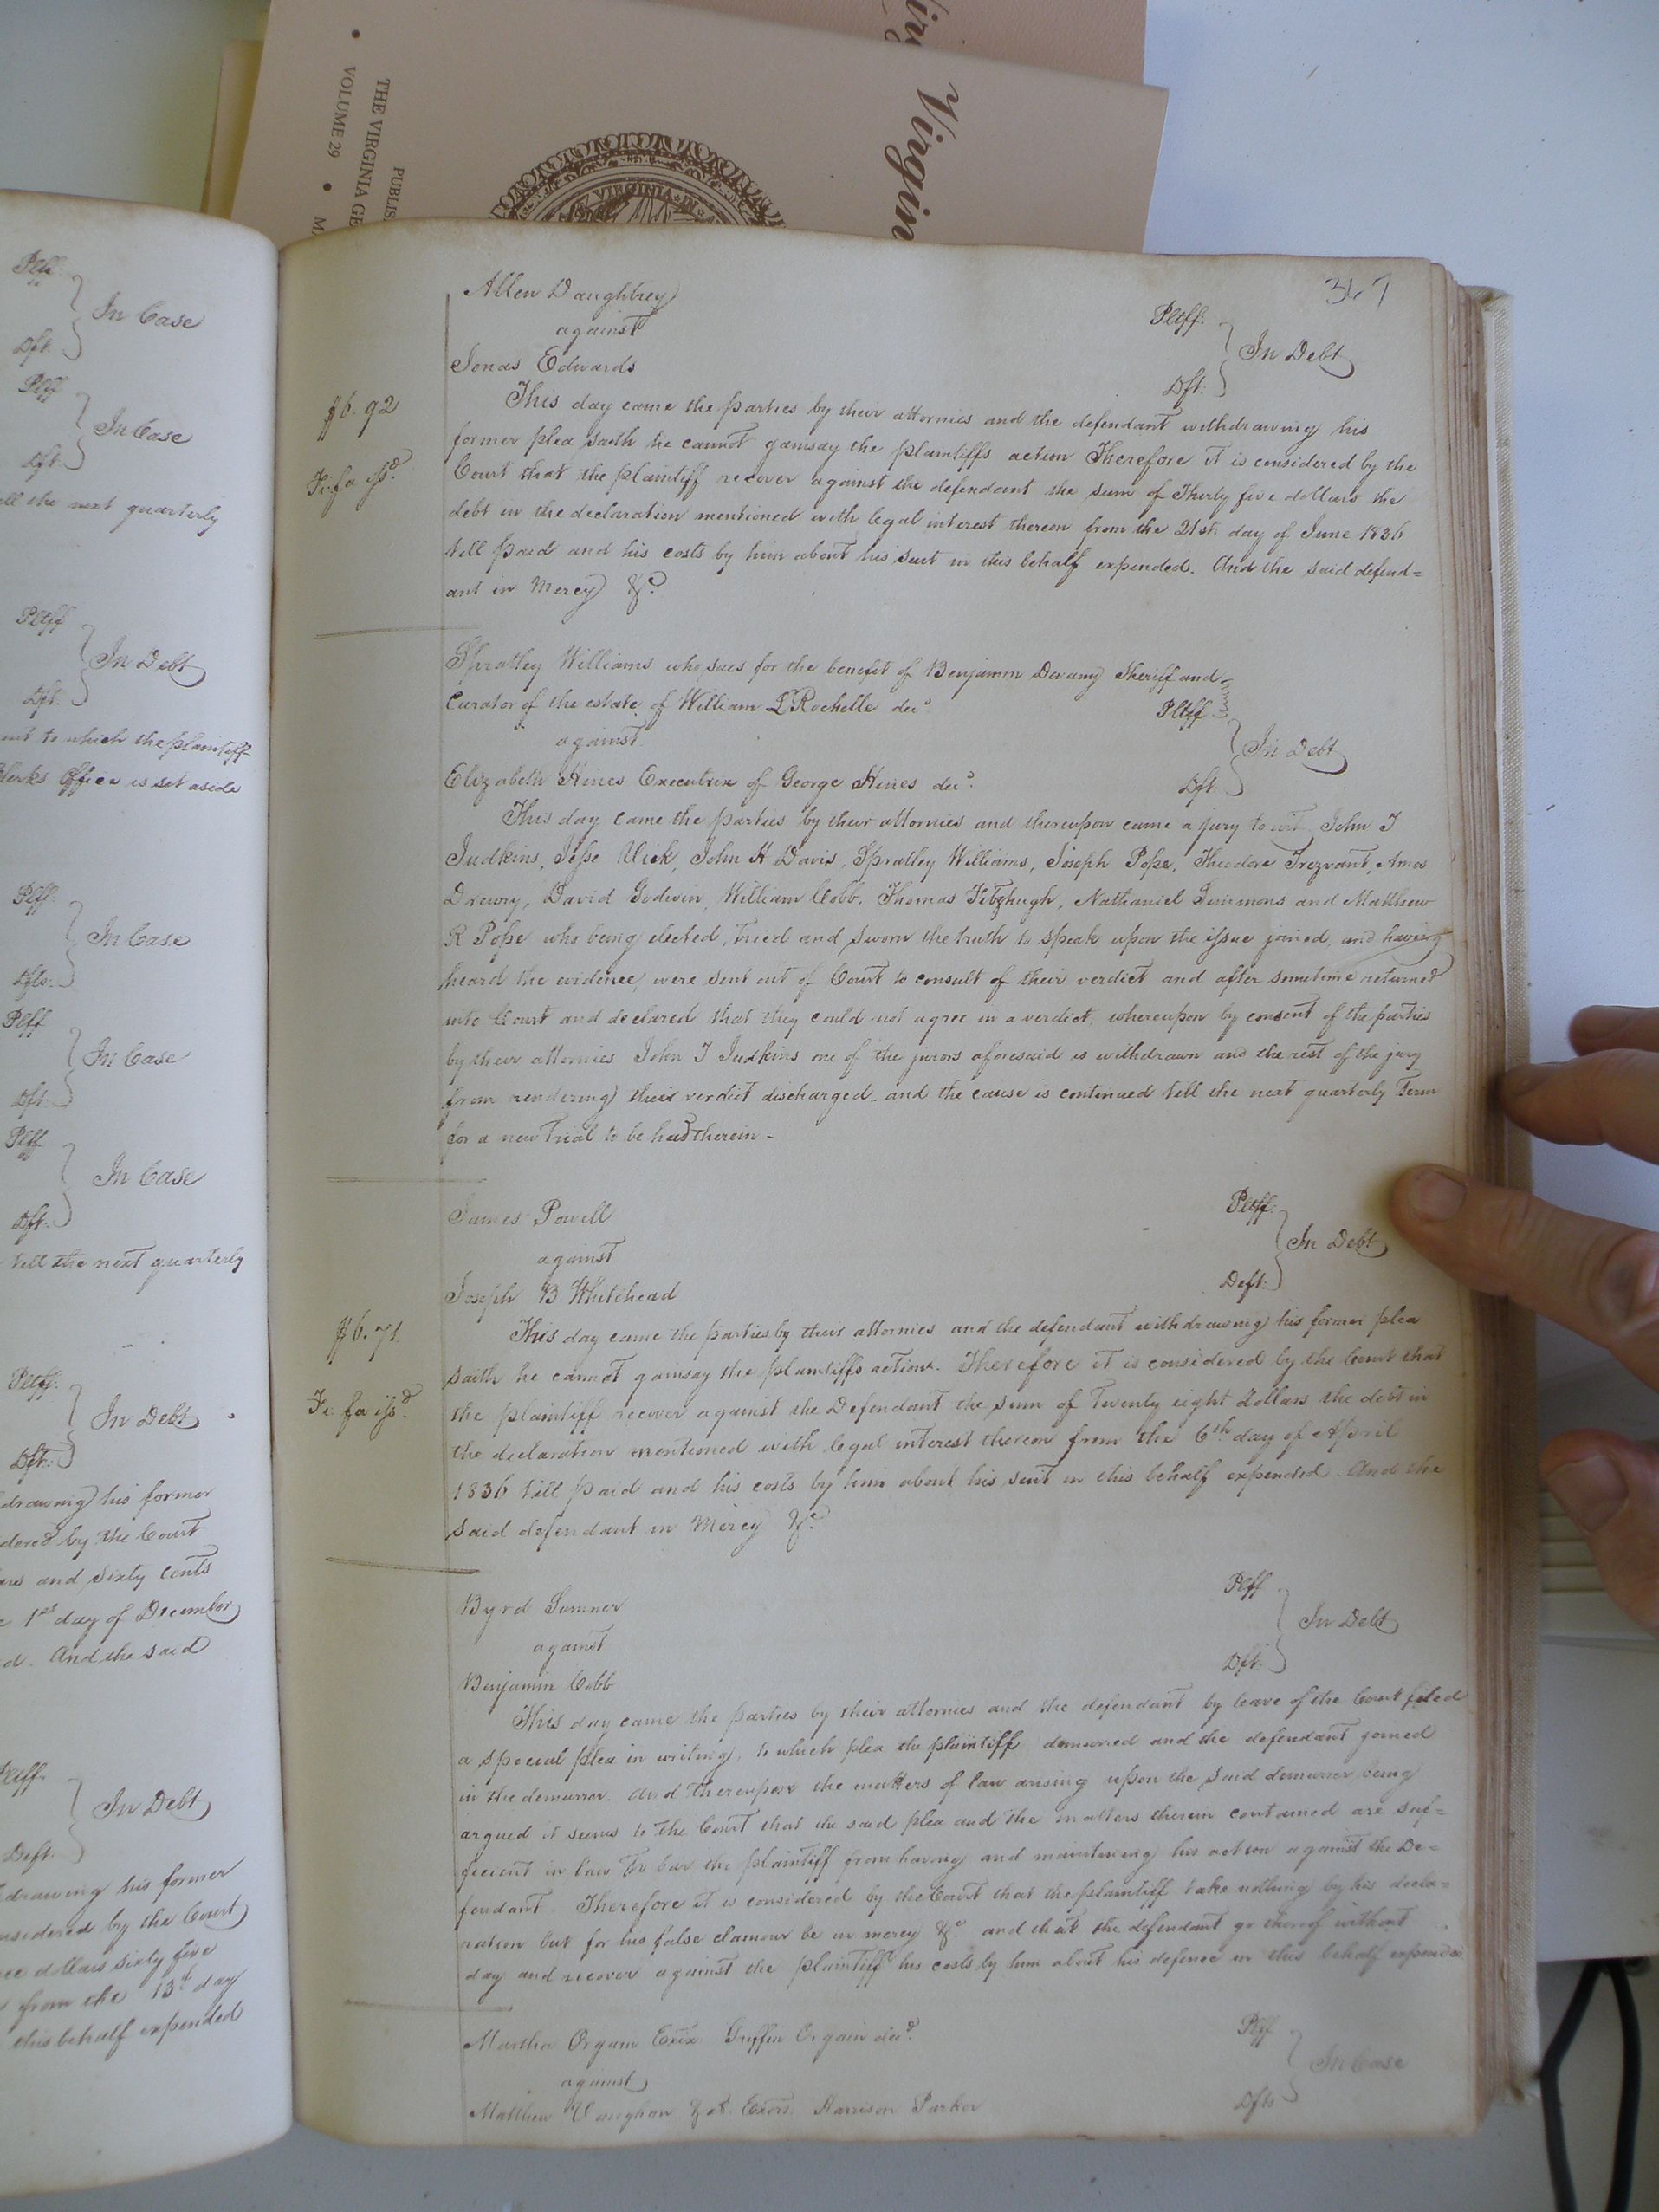 Virgin
THE VIRGINIA GE
VOLUME 29
PUBLIS
VIRGINIA
Pltf.
In Case
Dft.
Pltf
In Case
Dft.
till the next quarterly
Pltff
In Debt
Dft.
to which the plaintiff
Clerks Office is set aside
Pltff.
In Case
Dfts.
Pltff
In Case
Dft.
Pltff
In Case
Dft.
till the next quarterly
Pltff.
In Debt
Dft.
drawing his former
dered by the Court
and sixty cents
1st day of December
d. And the said
Pltff.
In Debt
Deft.
drawing his former
nsidered by the Court
dollars sixty five
from the 13th day
this behalf expended
347
Allen Daughtrey Pltff.
against
In Debt
Jonas Edwards Dft.
$6.92
This day came the parties by their attornies and the defendant withdrawing his
former plea saith he cannot gainsay the plaintiffs action Therefore it is considered by the
Fi: fa issd.
Court that the plaintiff recover against the defendant the sum of Thirty five dollars the
debt in the declaration mentioned with legal interest thereon from the 21st. day of June 1836
till paid and his costs by him about his suit in this behalf expended. And the said defend=
ant in Mercy &c.
Spratley Williams who sues for the benefit of Benjamin Devany Sheriff and
Curator of the estate of William L Rochelle decd. Pltff
against
In Debt
Elizabeth Hines Executrix of George Hines decd. Dft.
This day came the parties by their attornies and thereupon came a jury to wit John T
Judkins, Jesse Vick, John H Davis, Spratley Williams, Joseph Pope, Theodore Trezvant, Amos
Drewry, David Godwin, William Cobb, Thomas Fitzhugh, Nathaniel Simmons and Matthew
R Pope who being elected, tried and sworn the truth to speak upon the issue joined, and having
heard the evidence, were sent out of Court to consult of their verdict and after sometime returned
into Court and declared that they could not agree in a verdict, whereupon by consent of the parties
by their attornies John T Judkins one of the jurors aforesaid is withdrawn and the rest of the jury
from rendering their verdict discharged, and the cause is continued till the next quarterly Term
for a new Trial to be had therein -
James Powell Pltff.
against
In Debt
Joseph B Whitehead Deft.
$6.71.
This day came the parties by their attornies and the defendant withdrawing his former plea
saith he cannot gainsay the plaintiffs action. Therefore it is considered by the Court that
Fi: fa issd.
the plaintiff recover against the Defendant the sum of Twenty eight dollars the debt in
the declaration mentioned with legal interest thereon from the 6th day of April
1836 till paid and his costs by him about his suit in this behalf expended. And the
said defendant in Mercy &c.
Byrd Sumner Pltff
against
In Debt
Benjamin Cobb Dft.
This day came the parties by their attornies and the defendant by leave of the Court filed
a special plea in writing, to which plea the plaintiff demurred and the defendant joined
in the demurrer. And thereupon the matters of law arising upon the said demurrer being
argued it seems to the Court that the said plea and the matters therein contained are suf=
ficient in law to bar the plaintiff from having and maintaining his action against the De=
fendant. Therefore it is considered by the Court that the plaintiff take nothing by his decla=
ration but for his false clamour be in mercy &c. and that the defendant go thereof without
day and recover against the plaintiff his costs by him about his defence in this behalf expended
Martha Orgain Exix Griffin Orgain decd. Pltff
against
In Case
Matthew Vaughan & Exors. Harrison Parker Dfts